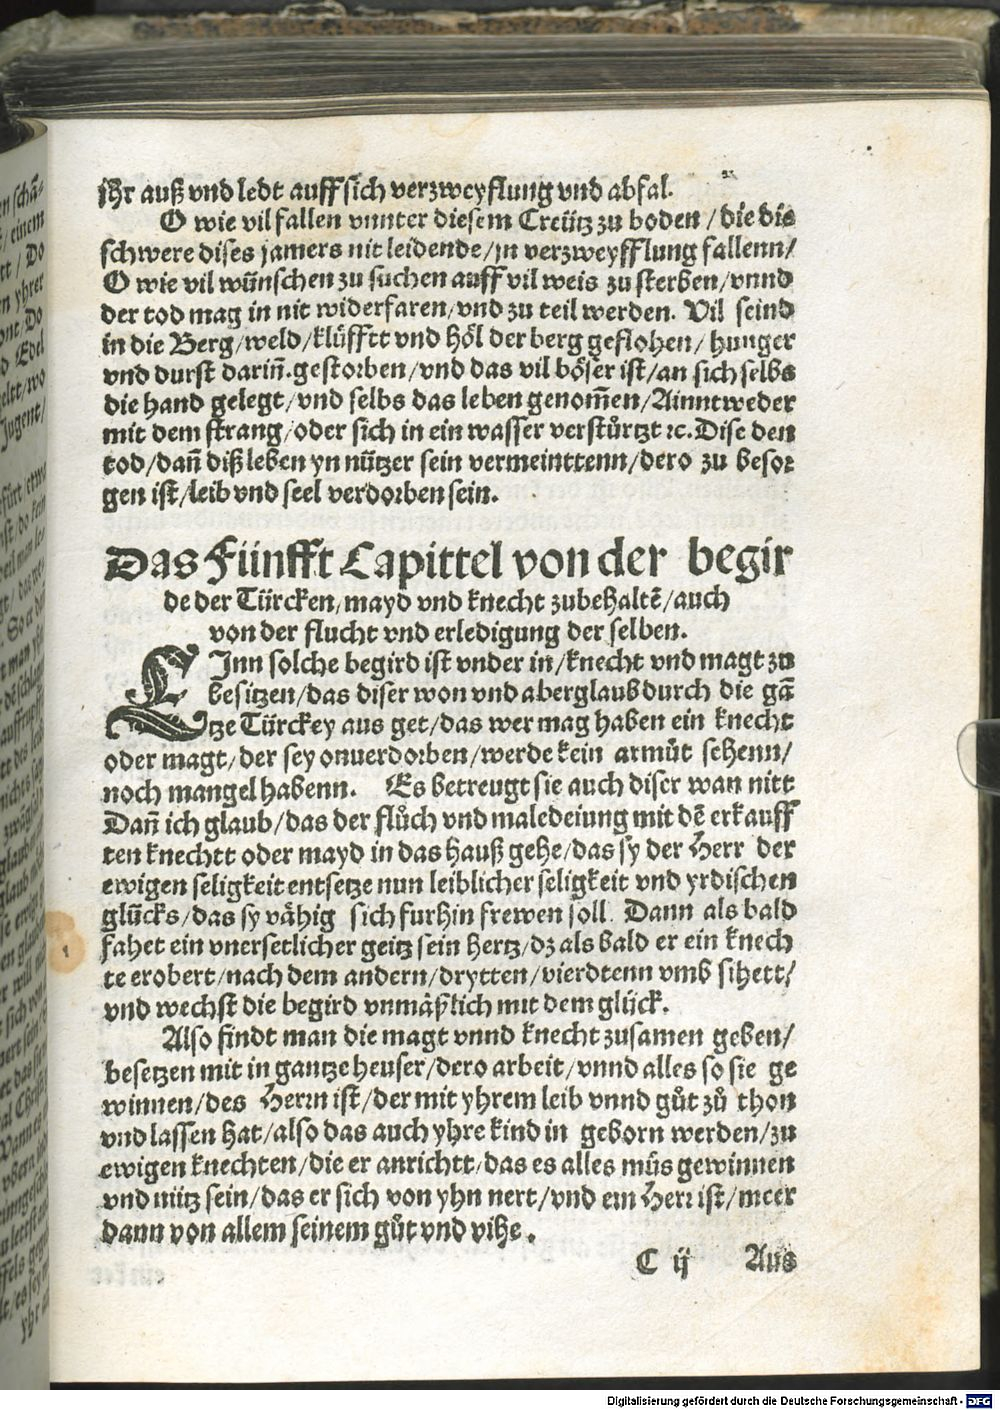 jhr auß vnd ledt auff sich verzweyflung vnd abfal.
O wie vil fallen vnnter diesem Creütz zu boden / die die
schwere dises jamers nit leidende/jn verzweyfflung fallenn/
O wie vil wünschen zu suchen auff vil weis zu sterben/vnnd
der tod mag in nit widerfaren/vnd zu teil werden. Vil seind
in die Berg/weld/klüfftt vnd höl der berg geflohen/ hunger
vnd durst dariñ.gestorben/vnd das vil böser ist/an sich selbs
die hand gelegt/vnd selbs das leben genom̃en/Ainntweder
mit dem strang/oder sich in ein wasser verstürtzt ⁊c.Dise den
tod/dañ diß leben yn nützer sein vermeinttenn/dero zu besor
gen ist/leib vnd seel verdorben sein.
Das Fünfft Capittel von der begir
de der Türcken/mayd vnd knecht zubehaltẽ/auch
von der flucht vnd erledigung der selben.
EInn solche begird ist vnder in/knecht vnd magt zu
besitzen/das diser won vnd aberglaub durch die gã
tze Türckey aus get/das wer mag haben ein knecht
oder magt/der sey onuerdorben/werde kein armůt sehenn/
noch mangel habenn. Es betreugt sie auch diser wan nitt
Dañ ich glaub/das der flůch vnd maledeiung mit dẽ erkauff
ten knechtt oder mayd in das hauß gehe/das sy der Herr der
ewigen seligkeit entsetze nun leiblicher seligkeit vnd yrdischen
glücks/das sy vähig sich furhin frewen soll. Dann als bald
fahet ein vnersetlicher geitz sein hertz/dz als bald er ein knech
te erobert/nach dem andern/drytten/vierdtenn vmb sihett/
vnd wechst die begird vnmäßlich mit dem glück.
Also findt man die magt vnnd knecht zusamen geben/
besetzen mit in gantze heuser/dero arbeit/vnnd alles so sie ge
winnen/des Herrn ist/der mit yhrem leib vnnd gůt zů thon
vnd lassen hat/also das auch yhre kind in geborn werden/zu
ewigen knechten/die er anrichtt/das es alles müs gewinnen
vnd nütz sein/das er sich von yhn nert/vnd ein Herr ist/meer
dann von allem seinem gůt vnd vihe.
C ij Aus
Digitalisierung gefördert durch die Deutsche Forschungsgemeinschaft - DFG